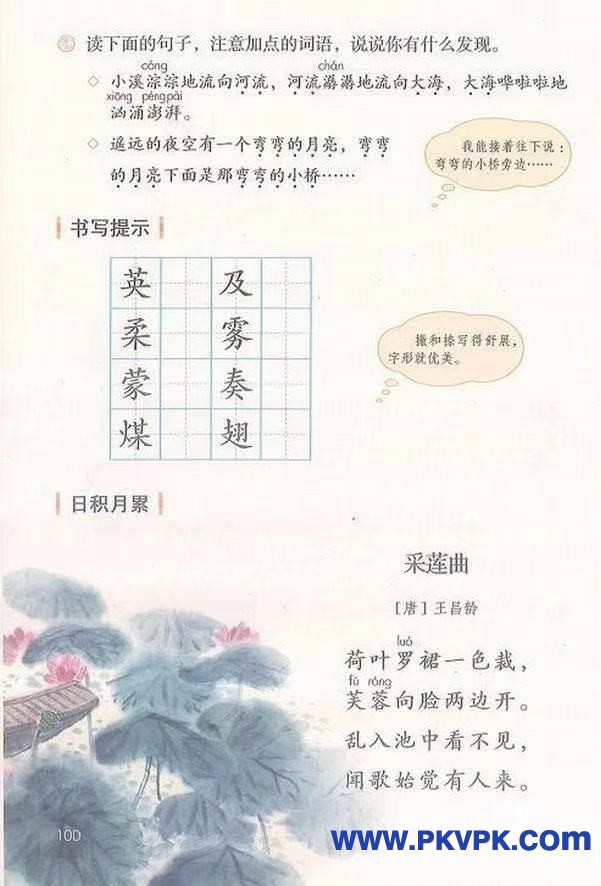 读下面的句子，注意加点的词语，说说你有什么发现。
cóng chán
◇ 小溪淙淙地流向河流，河流潺潺地流向大海，大海哗啦啦地
xiōng péngpài
汹涌澎湃。
◇ 遥远的夜空有一个弯弯的月亮，弯弯
的月亮下面是那弯弯的小桥……
我能接着往下说：
弯弯的小桥旁边……
书写提示
英 及
柔 雾
蒙 奏
煤 翅
撇和捺写得舒展，
字形就优美。
日积月累
采莲曲
［唐］王昌龄
luó
荷叶罗裙一色裁，
fú róng
芙蓉向脸两边开。
乱入池中看不见，
闻歌始觉有人来。
100
www.PKVPK.com